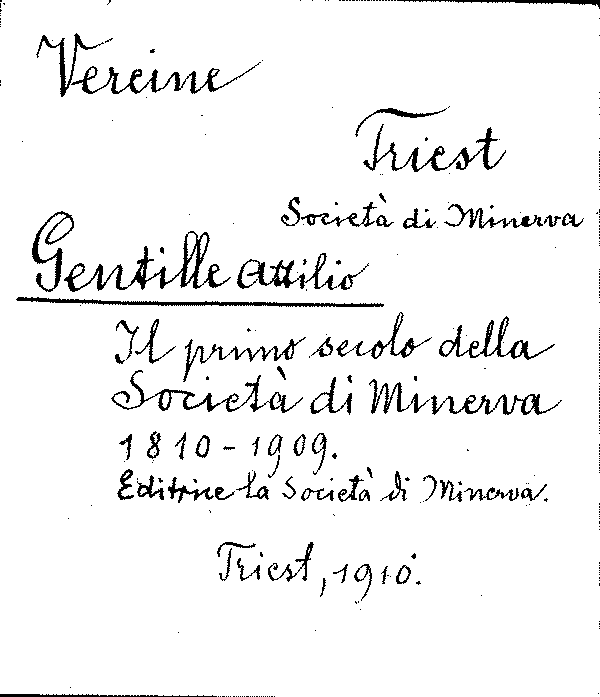 Vereine
Triest
Società di Minerva
Gentille Attilio
Il primo secolo della
Società di Minerva
1810-1909.
Editrice la Società di Minerva.
Triest, 1910.